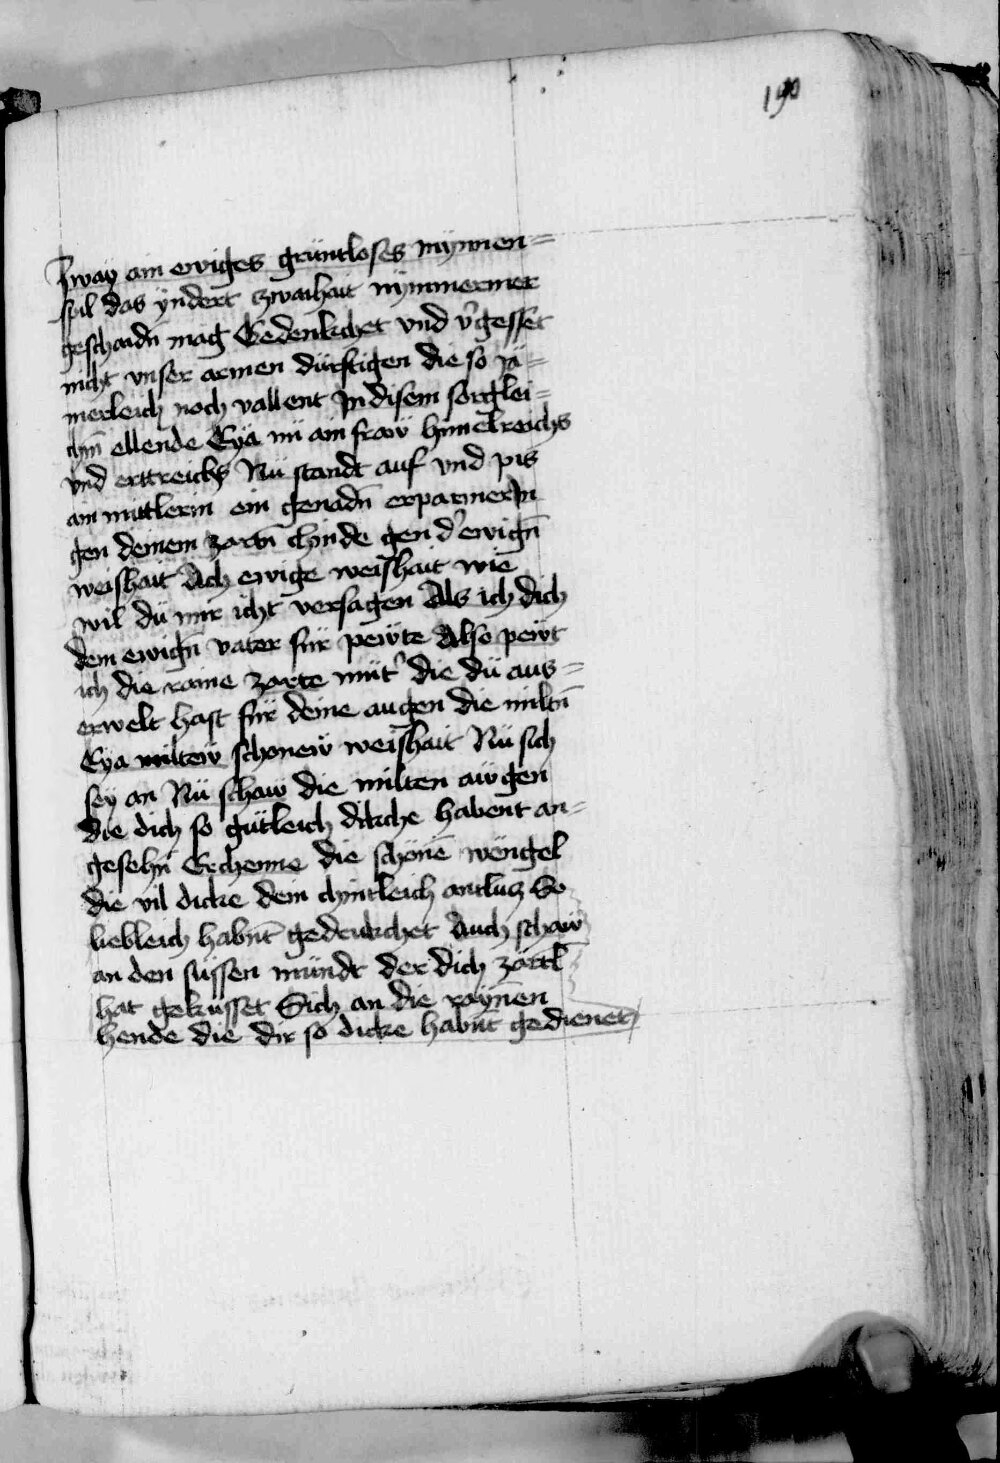 190
Zway ain ewiges grüntloses mynnen=
spil das ÿndert zwaihait nÿmmermer
geschaidn̄ mag Gedenkchet vnd v̓gesset
nicht vnser armen dürftigen die so jä=
merleich noch vallent In disem sorglei=
chn̄ ellende Eyä nü ain fraw himelreichs
vnd erttreichs Nü standt auf vnd pis
ain mittlerin ein genadn̄ erparmerIn
gen deinem zartn̄ chinde gen d̓ ewign̄
weishait Ach ewige weishait wie
wil dü mir icht versagen Als ich dich
dem ewign̄ vater für pewte Also pewt
ich die raine zarte müt̓ die dü aus=
erwelt hast für deine augen die miltn̄
Eya miltew schonew weishait Nü sich
sey an Nü schaw die milten awgen
die dich so gütleich dikche habent an=
gesehn̄ Erchenne die schönē wengel
die vil dicke dein chintleich antlucz So
liebleich habnt̄ gedrukchet Auch schaw
an den süssen mündt der dich zärtl̄
hat geküsset Sich an die raynen
hende die dir so dicke habnt̄ gedienet